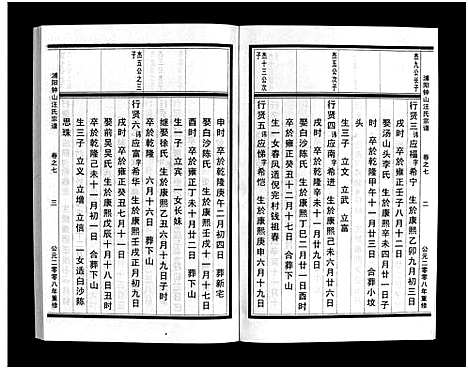 浦阳钟山汪氏宗谱 卷之七 二 公元二零零八年重修
杰九公长子
行贤三 讳应福 字希宁 生於康熙乙卯九月初三日
戌时 卒於雍正壬子八月十二日
娶汤山头李氏 生於康熙辛未四月廿一日子
时 卒於乾隆甲午十一月廿三日 合葬小坟
头
杰五公次子
行贤四 讳应南 字希进 生於康熙己未六月廿四日
生三子 立文 立武 立富
戌时 卒於雍正癸丑八月廿三日
娶白沙陈氏 生於康熙丁巳二月廿八日酉时
卒於乾隆辛未十一月廿九日
生一女春凤适倪宅村钱祖春
杰十三公次子
行贤五 讳应悌 字希恺 生於康熙庚申六月十九日
申时 卒於乾隆庚午二月初四日 葬新宅
娶白沙陈氏 生於康熙壬戌十一月十七日
酉时 卒於雍正丁未十月廿二日 葬下山
生一子 立宾 一女长妹
继娶徐氏 生於康熙乙丑六月十九日子时
卒於乾隆 六月十六日 葬下山
杰五公之三子
行贤六 讳应富 字希华 生於康熙壬戌正月初九日
卒於雍正癸丑七月十一日
娶前吴吴氏 生於康熙戊辰十月十八日丑时
卒於乾隆己未十一月初一日 合葬下山
生三子 立义 立增 立信 一女适白沙陈
思珠
浦阳钟山汪氏宗谱 卷之七 三 公元二零零八年重修